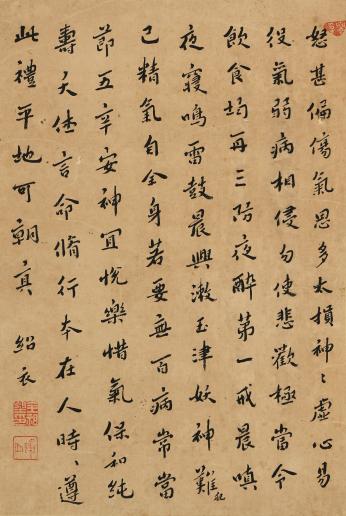 怒甚偏傷氣思多太損神〻虛心易
役氣弱病相侵勿使悲歡極當令
飲食均再三防夜醉第一戒晨嗔
夜寢鳴雷鼓晨興漱玉津妖神難犯
己精氣自全身若要無百病常當
節五辛安神宜悅樂惜氣保和純
壽夭休言命脩行本在人時〻遵
此禮平地可朝真 紹衣